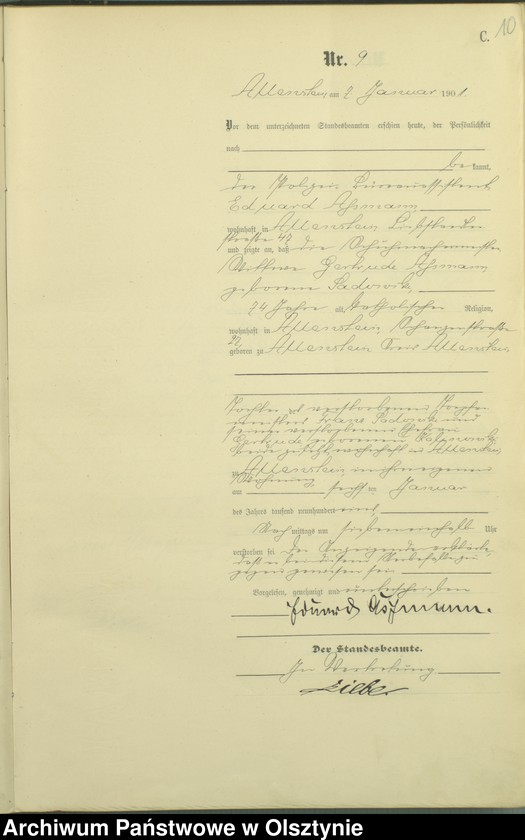 C. 10
Nr. 9
Allenstein am 7 Januar 1901.
Vor dem unterzeichneten Standesbeamten erschien heute, der Persönlichkeit
nach
be kannt,
der Polizei Bureauassistent
Eduard Aßmann
wohnhaft in Allenstein Liebstädter
straße 47
und zeigte an, daß die Schuhmachermeister
Wittwe Gertrude Aßmann
geborene Sadowski
74 Jahre alt, katholischer Religion,
wohnhaft in Allenstein, Schanzenstraße
27,
geboren zu Allenstein Kreis Allenstein
Tochter des verstorbenen Töpfer
meisters Franz Sadowski und
seiner verstorbenen Ehefrau
Gertrude geborenen
beide zuletzt wohnhaft in Allenstein,
zu Allenstein in ihrer eigenen
Wohnung
am sechsten Januar
des Jahres tausend neunhundert eins
Nach mittags um sieben einhalb Uhr
verstorben sei. Der Anzeigende erklärte,
daß er bei diesem Sterbefalle zu
gegen gewesen sei.
Vorgelesen, genehmigt und unterschrieben
Eduard Aßmann.
Der Standesbeamte.
In Vertretung
Archiwum Państwowe w Olsztynie